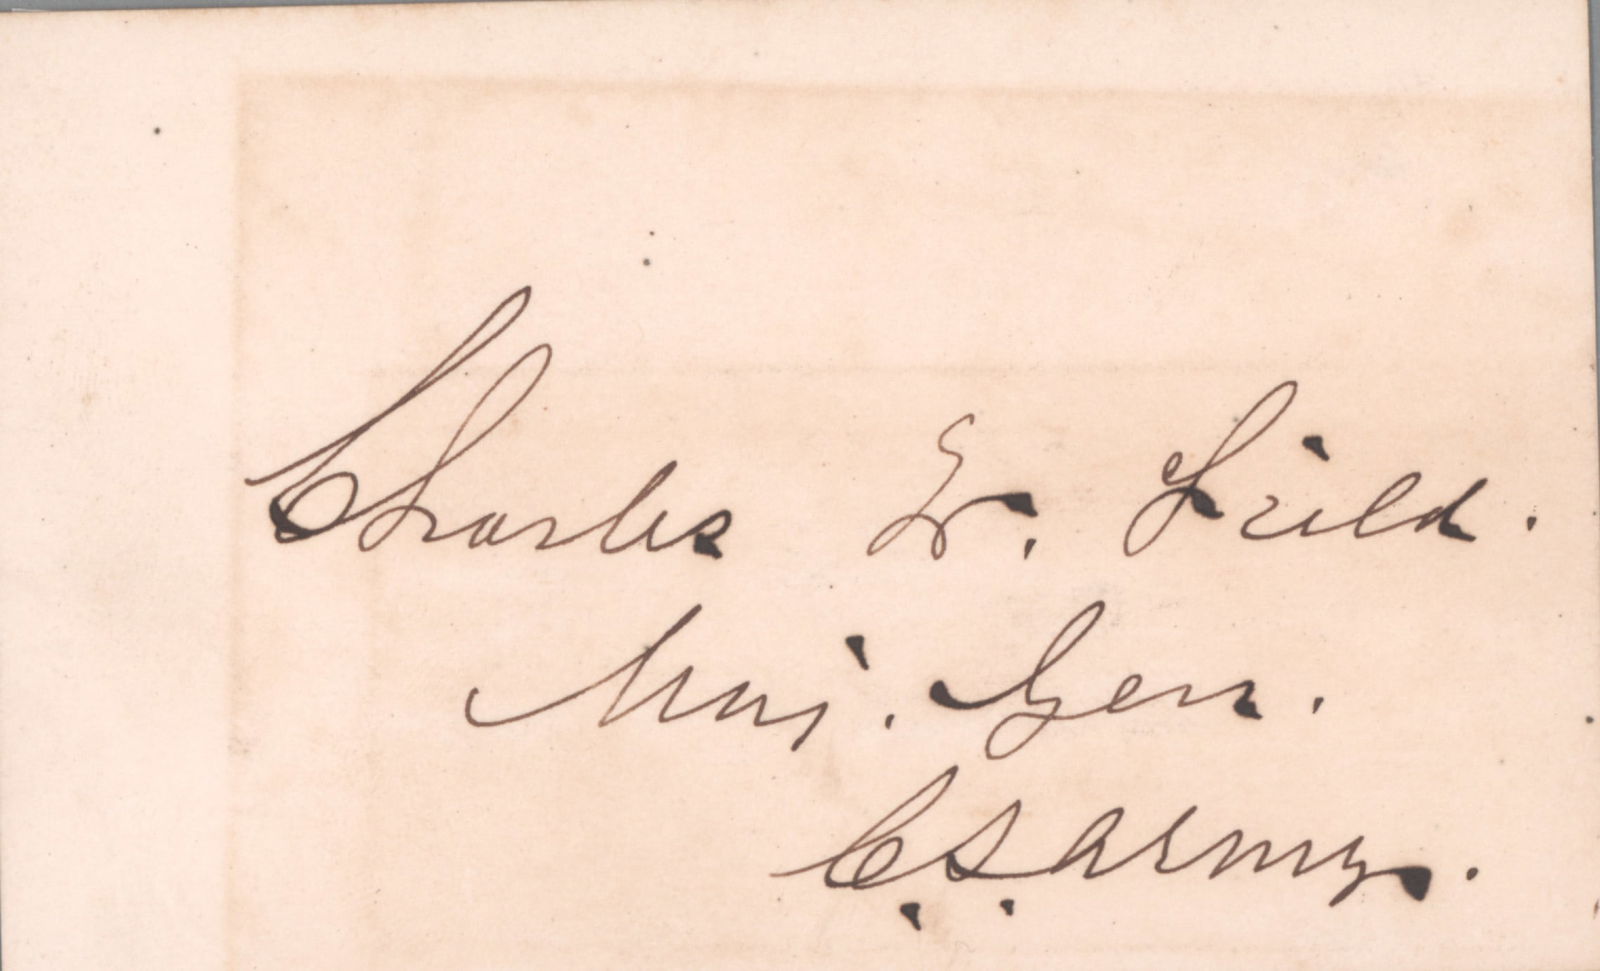 Charles W. Field.
Maj. Gen.
C.S. Army.